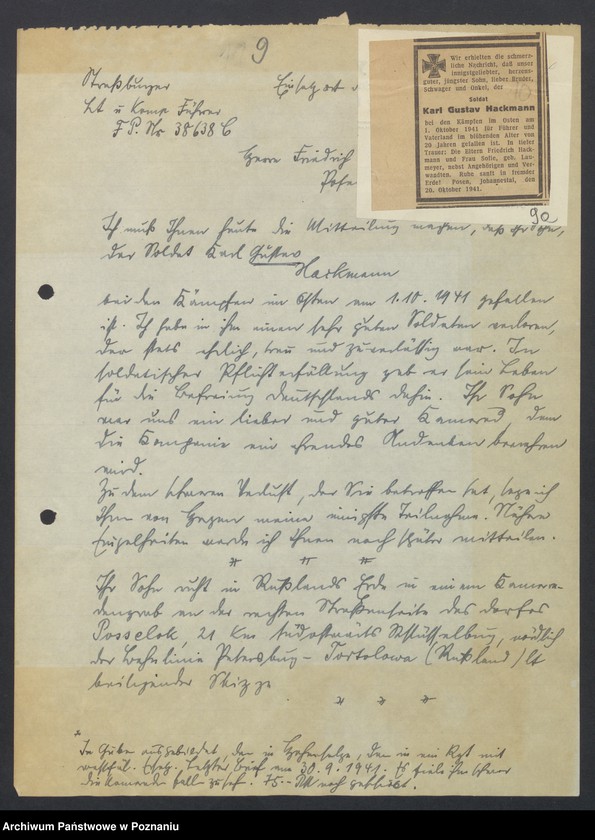 9
Straßburger
Lt u Komp. Führer
F. P. Nr 38638 C
Einsatzort d
Herrn Friedrich
Posen
Wir erhielten die schmerz-
liche Nachricht, daß unser
innigstgeliebter, herzens-
guter, jüngster Sohn, lieber Bruder,
Schwager und Onkel, der
Soldat
Karl Gustav Hackmann
bei den Kämpfen im Osten am
1. Oktober 1941 für Führer und
Vaterland im blühenden Alter von
20 Jahren gefallen ist. In tiefer
Trauer: Die Eltern Friedrich Hack-
mann und Frau Sofie, geb. Lau-
meyer, nebst Angehörigen und Ver-
wandten. Ruhe sanft in fremder
Erde! Posen, Johannestal, den
20. Oktober 1941.
9a
Ich muß Ihnen heute die Mitteilung machen, daß Ihr Sohn,
der Soldat Karl Gustav
Hackmann
bei den Kämpfen im Osten am 1.10.1941 gefallen
ist. Ich habe in ihm einen sehr guten Soldaten verloren,
der stets ehrlich, treu und zuverlässig war. In
soldatischer Pflichterfüllung gab er sein Leben
für die Befreiung Deutschlands dahin. Ihr Sohn
war uns ein lieber und guter Kamerad, dem
die Kompanie ein ehrendes Andenken bewahren
wird.
Zu dem schweren Verlust, der Sie betroffen hat, sage ich
Ihnen von Herzen meine innigste Teilnahme. Nähere
Einzelheiten werde ich Ihnen noch später mitteilen.
Ihr Sohn ruht in Rußlands Erde in einem Kamera-
dengrab an der rechten Straßenseite des Dorfes
Posselok, 21 km südostwärts Schlüsselburg, nördlich
der Bahnlinie Petersburg - Tortolowa (Rußland) lt
beiliegender Skizze
In Gube ausgebildet, dann in Hohensalza, dann in ein Rgt mit
westfäl. Ersatz. Letzter Brief am 30.9.1941. Es fiel ihm schwer
die Kameraden fallen zu sehen. 75.- RM noch
Archiwum Państwowe w Poznaniu